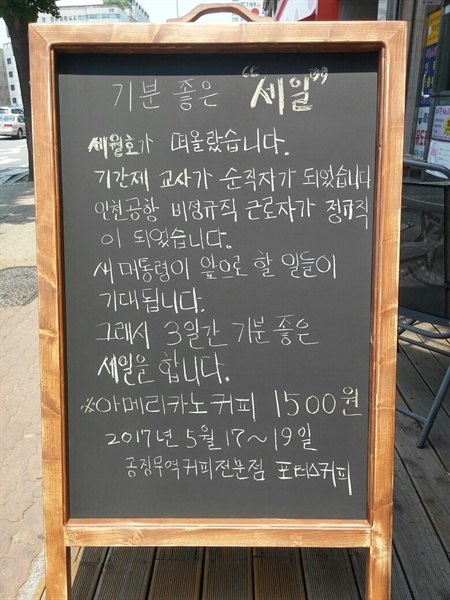 기분 좋은 “세일”
세월호가 떠올랐습니다.
기간제 교사가 순직자가 되었습니다
인천공항 비정규직 근로자가 정규직
이 되었습니다.
새 대통령이 앞으로 할 일들이
기대됩니다.
그래서 3일간 기분 좋은
세일을 합니다.
※아메리카노커피 1500원
2017년 5월 17~19일
공정무역커피전문점 포터스커피